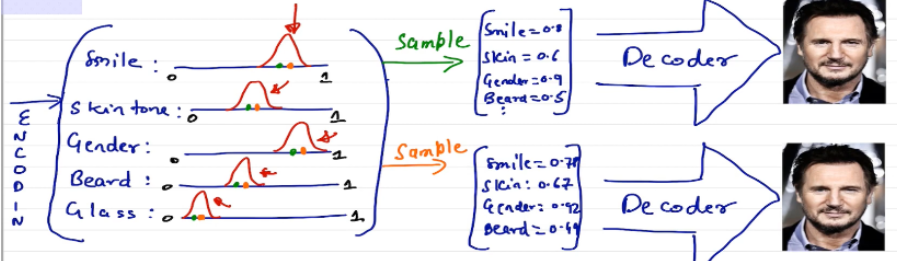 ENCODIN
Smile : 0 1
Skin tone : 0 1
Gender : 0 1
Beard : 0 1
Glass : 0 1
Sample
Smile = 0.8
Skin = 0.6
Gender = 0.9
Beard = 0.5
Decoder
Sample
Smile = 0.78
Skin : 0.67
Gender : 0.92
Beard = 0.49
Decoder